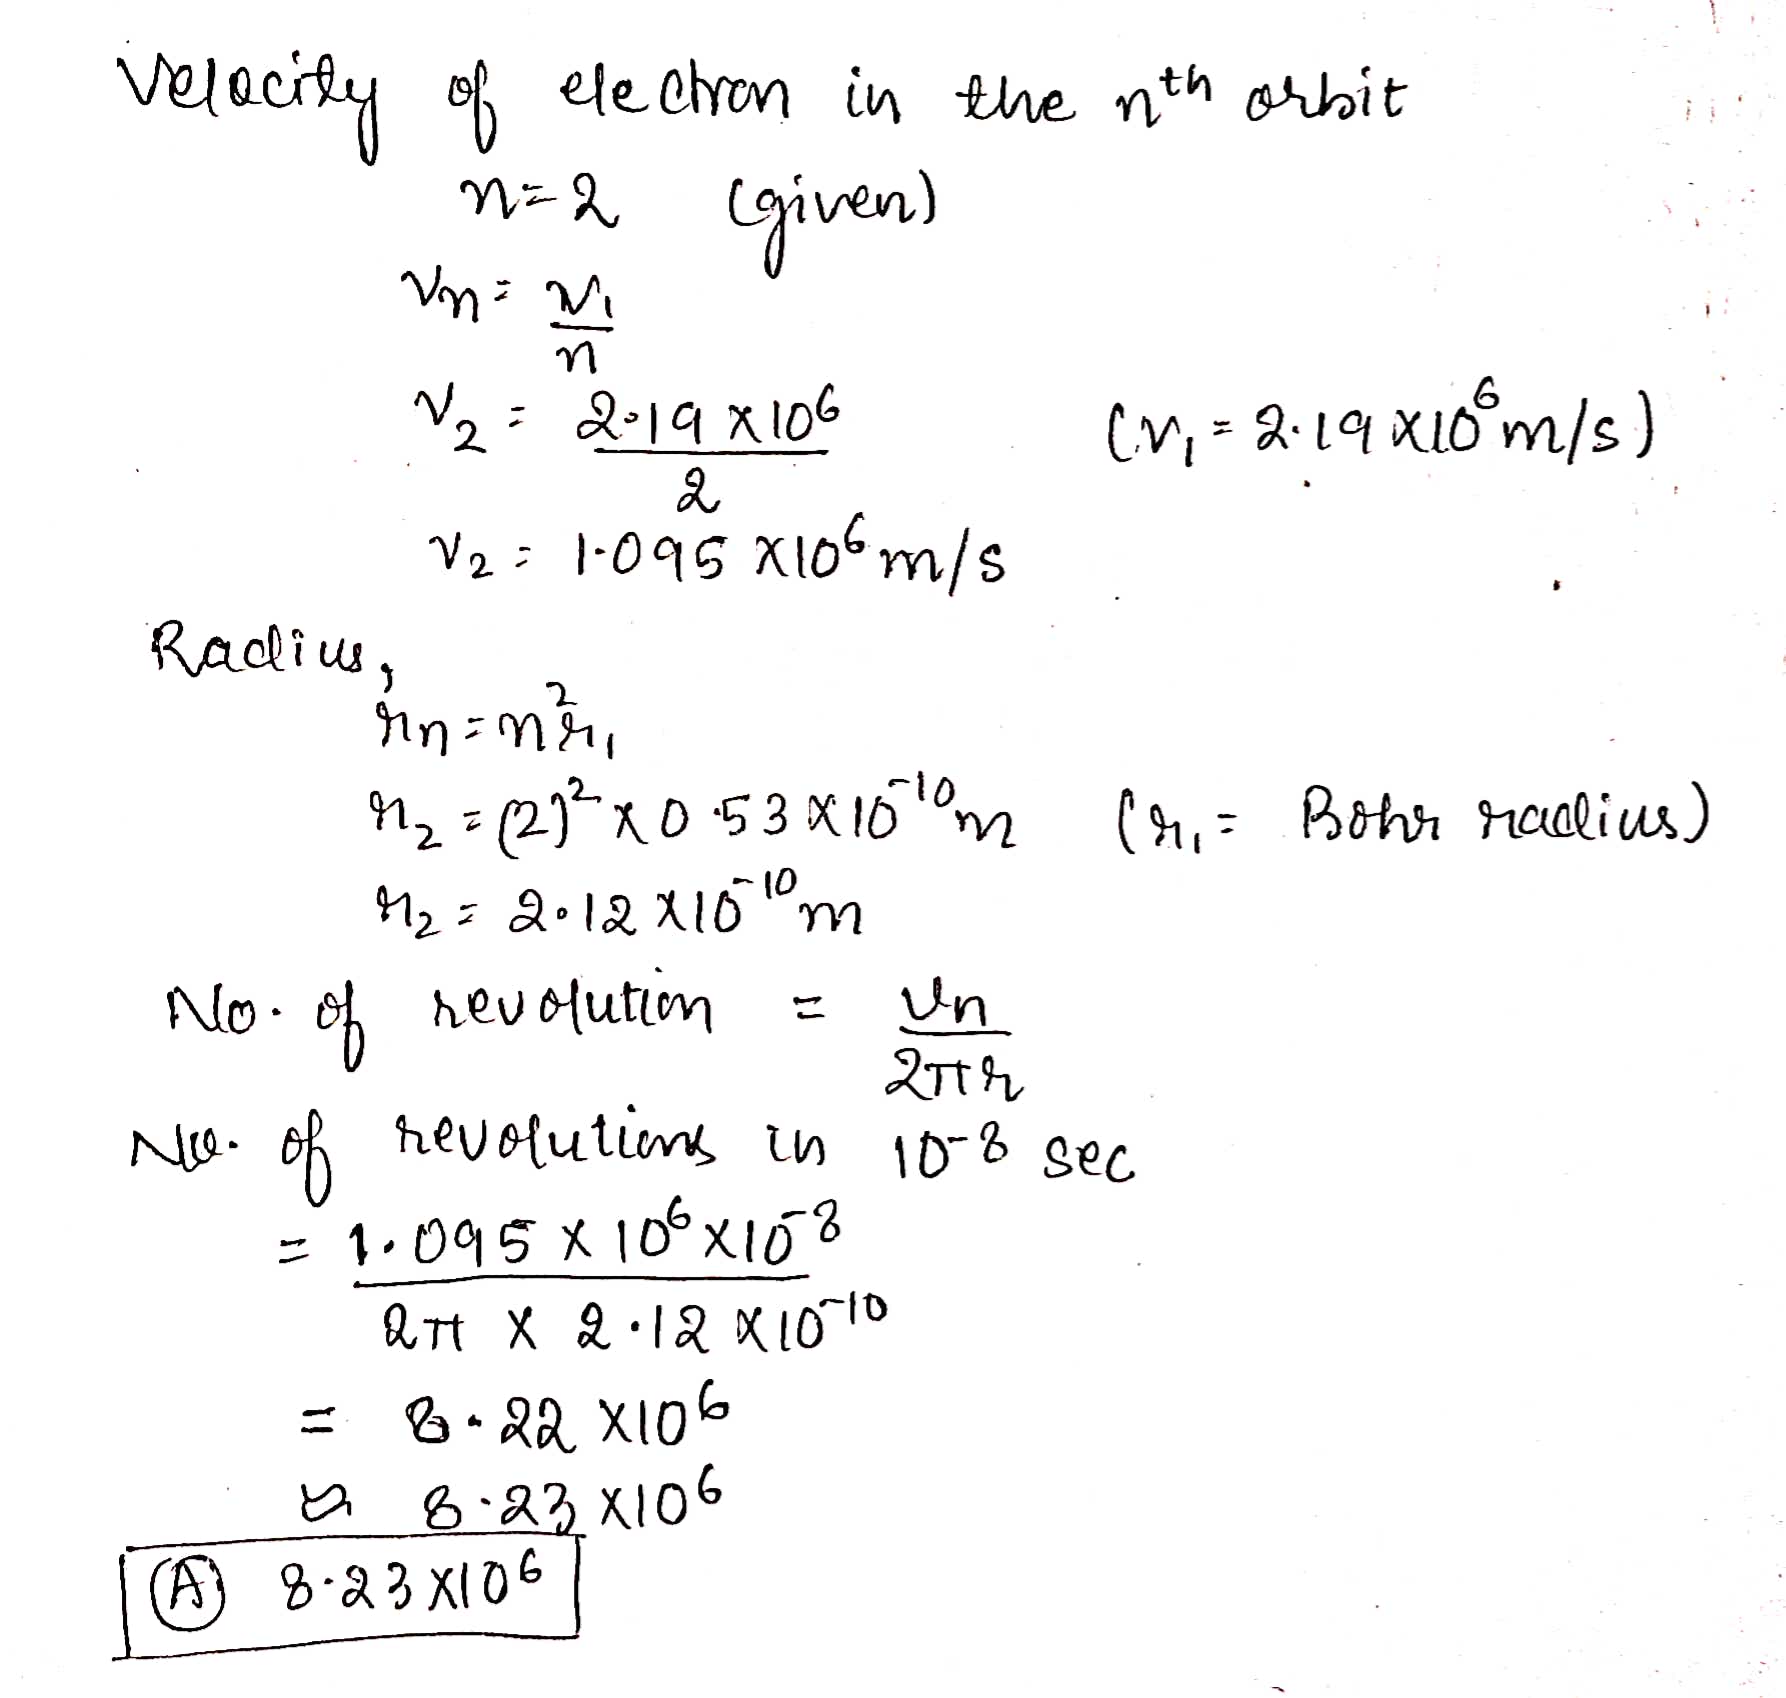 Velocity of electron in the nth orbit
n=2 (given)
vn = v1/n
v2 = 2.19 x 10^6 / 2 (v1 = 2.19 x10^6 m/s)
v2 = 1.095 x10^6 m/s
Radius,
rn = n^2 r1
r2 = (2)^2 x 0.53 x 10^-10 m (r1 = Bohr radius)
r2 = 2.12 x10^-10 m
No. of revolution = vn / 2πr
No. of revolutions in 10^-8 sec
= 1.095 x 10^6 x 10^-8 / 2π x 2.12 x 10^-10
= 8.22 x10^6
≈ 8.23 x10^6
(A) 8.23 x10^6